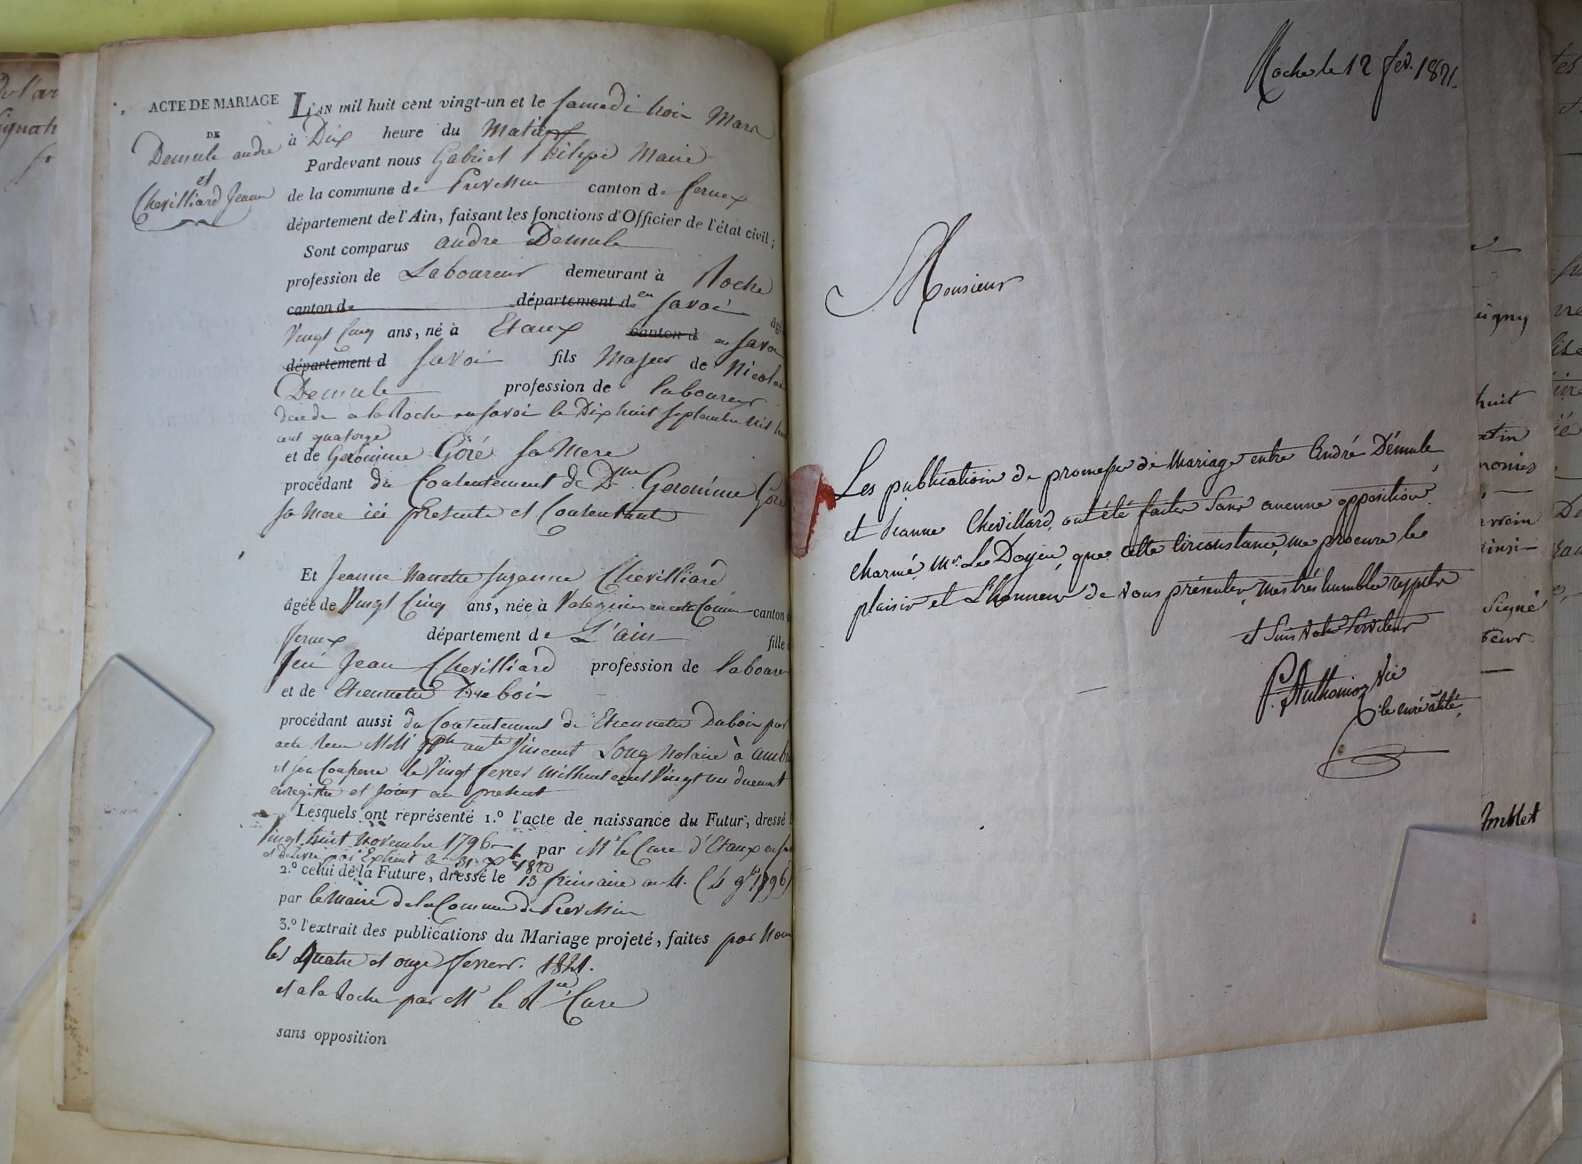 ACTE DE MARIAGE
DE
Demule andre
et
Chevilliard Jeanne
L'AN mil huit cent vingt-un et le samedi trois Mars
à Dix heure du Matin
Pardevant nous Gabriel Philipe Maire
de la commune de Prevessin canton de fernex
département de l'Ain, faisant les fonctions d'Officier de l'état civil;
Sont comparus andre Demule
profession de Laboureur demeurant à Roche
canton de département de en Savoi
Vingt Cinq ans, né à Etaux canton d en Savoi
département d Savoi fils Majeur de Nicolas
Demule profession de laboureur
decede a la Roche en Savoi le Dix huit Septembre Mil huit
cent quatorze
et de Geronime Goré sa Mere
procédant du Consentement de Dme Geronime Goré
sa Mere ici presente et Consentante
Et Jeanne Nanette Suzanne Chevilliard
âgée de Vingt Cinq ans, née à en cette Comm canton
fernex département de L'ain fille
feu Jean Chevilliard profession de laboureur
et de Etiennette Dubois
procédant aussi du Consentement de Etiennette Dubois par
acte Vincent Long Notaire à
et son Confrere le Vingt fevrier Mil huit cent Vingt un duement
enregistré et joint au present
Lesquels ont représenté 1.º l'acte de naissance du Futur, dressé
Vingt huit Novembre 1796 par Mr le Cure d'Etaux en
et délivré par Extrait le 31 1820
2.º celui de la Future, dressé le 13 frimaire an 4.
par le Maire de la Commune de Prevessin
3.º l'extrait des publications du Mariage projeté, faites par Nous
les Quatre et onze fevrier 1821.
et a la Roche par Mr le Rd Cure
sans opposition
Roche le 12 fev. 1821.
Monsieur
Les publications de promesses de Mariage entre André Démule
et Jeanne Chevillard, ont été faites Sans aucune opposition.
charmé, Mr. Le Doyen, que cette Circonstance, me procure le
plaisir et L'honneur de vous présenter, mes très humbles respects
et Suis votre Serviteur
P. Anthonioz Vic
huit
Signé